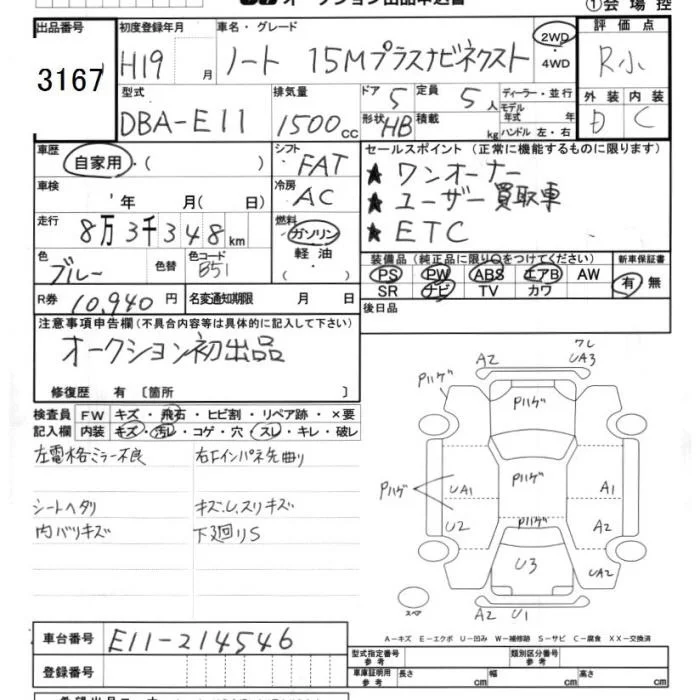 オークション出品申込書
①会場控
出品番号 初度登録年月 車名・グレード 評価点
3167 H19 月 ノート 15Mプラスナビネクスト 2WD・4WD R小
型式 排気量 ドア 定員 ディーラー・並行 外装 内装
DBA-E11 1500cc 5 5人 モデル年式 年 D C
形状 HB 積載 kg ハンドル 左・右
車歴 自家用・( ) シフト FAT セールスポイント(正常に機能するものに限ります)
★ワンオーナー
車検 年 月(日) 冷房 AC ★ユーザー買取車
走行 8万3千348km 燃料 ガソリン 軽油 ・ ★ETC
色 ブルー 色替 色コード B51 装備品(純正品に限り○をつけてください) 新車保証書
PS PW ABS エアB AW 有・無
SR ナビ TV カワ
R券 10,940円 名変通知期限 月 日 後日品
注意事項申告欄(不具合内容等は具体的に記入して下さい)
オークション初出品
修復歴 有〔箇所 〕
検査員 FW キズ・飛石・ヒビ割・リペア跡・×要
記入欄 内装 キズ・汚レ・コゲ・穴・スレ・キレ・破レ
左電格ミラー不良 右Fインパネ先曲り
シートヘタリ キズ.U.スリキズ
内バリキズ 下廻りS
A2 ワレ UA3
Pハゲ Pハゲ
Pハゲ Pハゲ
UA1 A1
Pハゲ
U2 A2
U3 UA2
スペア A2 U1
A-キズ E-エクボ U-凹み W-補修跡 S-サビ C-腐食 XX-交換済
車台番号 E11-214546
登録番号
型式指定番号 参考 類別区分番号 参考
車庫証明用 参考 長さ cm 幅 cm 高さ cm